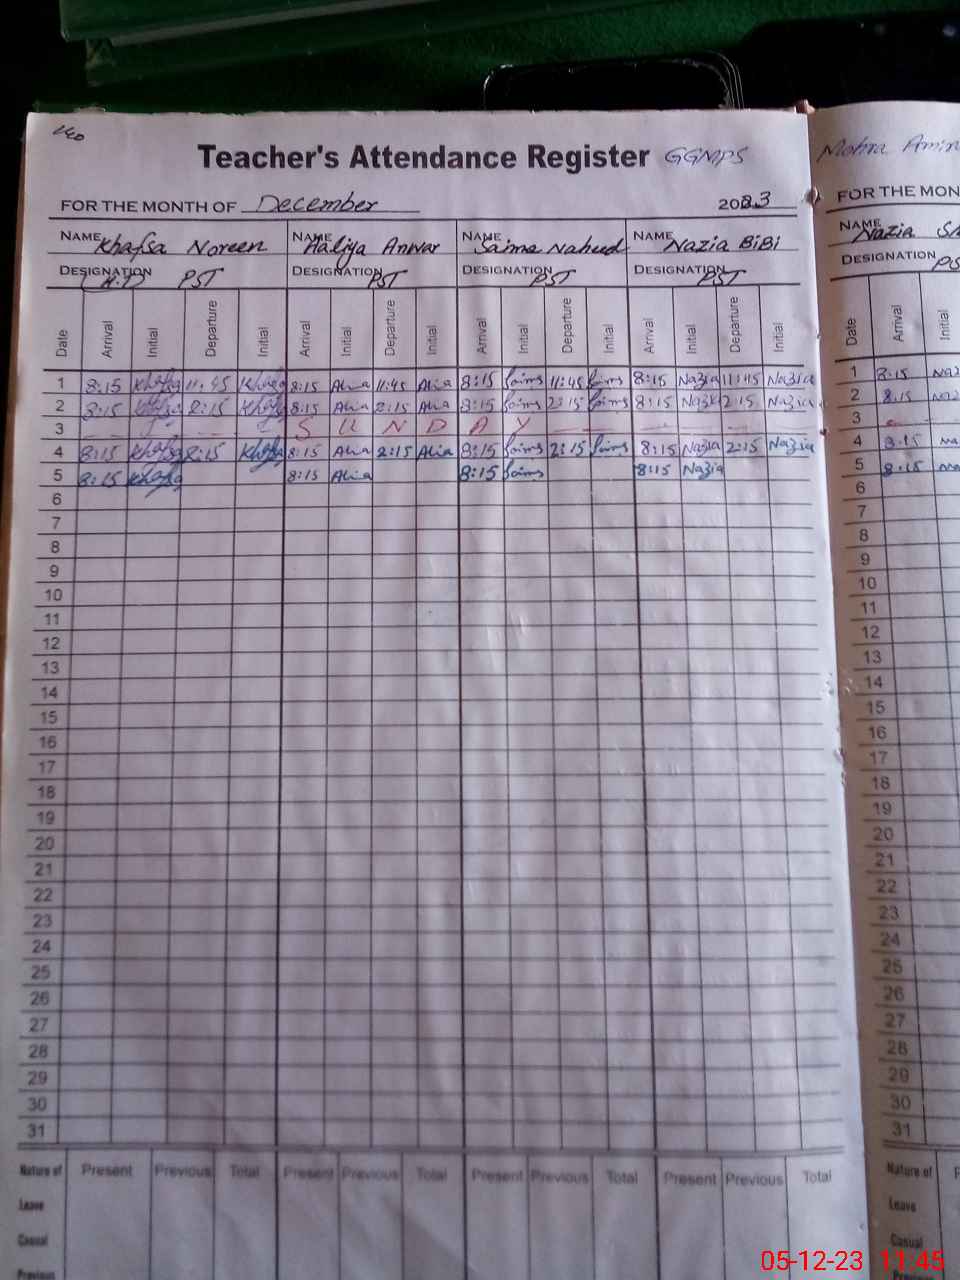 Teacher's Attendance Register GGMPS
FOR THE MONTH OF December 2023
NAME Khafsa Noreen NAME Aaliya Anwar NAME Saima Naheed NAME Nazia BiBi
DESIGNATION (H.T) PST DESIGNATION PST DESIGNATION PST DESIGNATION PST
Date Arrival Initial Departure Initial Arrival Initial Departure Initial Arrival Initial Departure Initial Arrival Initial Departure Initial
1 8:15 Khafsa 11:45 Khafsa 8:15 Alia 11:45 Alia 8:15 Saima 11:45 Saima 8:15 Nazia 11:45 Nazia
2 8:15 Khafsa 2:15 Khafsa 8:15 Alia 2:15 Alia 8:15 Saima 2:15 Saima 8:15 Nazia 2:15 Nazia
3 S U N D A Y
4 8:15 Khafsa 2:15 Khafsa 8:15 Alia 2:15 Alia 8:15 Saima 2:15 Saima 8:15 Nazia 2:15 Nazia
5 8:15 Khafsa 8:15 Alia 8:15 Saima 8:15 Nazia
6
7
8
9
10
11
12
13
14
15
16
17
18
19
20
21
22
23
24
25
26
27
28
29
30
31
Nature of Present Previous Total Present Previous Total Present Previous Total Present Previous Total
Leave
Casual
Previous
Mohra Amin
FOR THE MON
NAME Nazia
DESIGNATION PS
Date Arrival Initial
1 8:15
2 8:15
3
4 8:15
5 8:15
6
7
8
9
10
11
12
13
14
15
16
17
18
19
20
21
22
23
24
25
26
27
28
29
30
31
Nature of
Leave
Casual
Previous
05-12-23 11:45